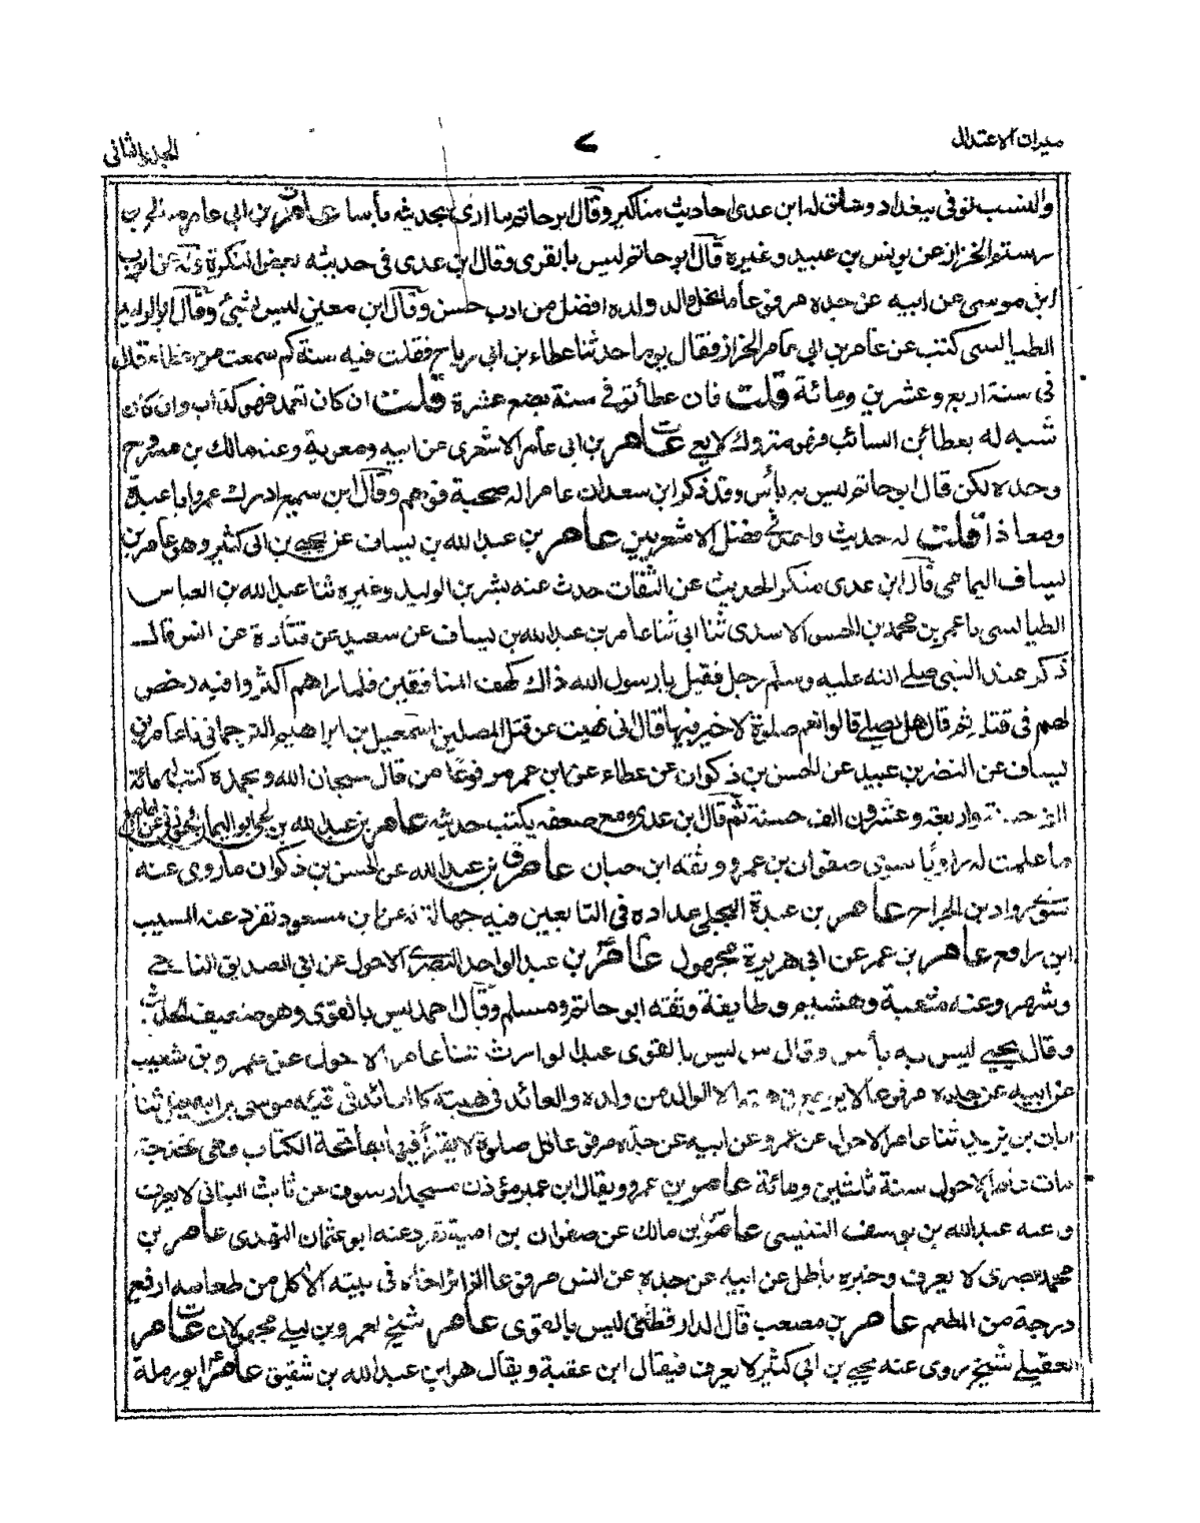 ميزان الاعتدال
٧
المجلد الثانى
والنسب توفى ببغداد وساق له ابن عدى احاديث مناكير وقال ابو حاتم ما ارى بحديثه بأسا عامر بن ابى عامر صالح بن
رستم الخزاز عن يونس بن عبيد وغيره قال ابو حاتم ليس بالقوى وقال ابن عدى فى حديثه بعض النكرة له عن ايوب
ابن موسى عن ابيه عن جده مرفوعا ما نحل والد ولده افضل من ادب حسن وقال ابن معين ليس بشئ وقال ابو الوليد
الطيالسى كتبت عن عامر بن ابى عامر الخزاز فقال يوما حدثنا عطاء بن ابى رباح فقلت فيه سنة كم سمعت من عطاء قال
فى سنة اربع وعشرين ومائة قلت فان عطأ توفى سنة بضع عشرة قلت ان كان تعمد فهو كذاب وان كان
شبه له بعطا بن السائب فهو متروك لا يعى عامر بن ابى عامر الاشعرى عن ابيه ومعوية وعنه مالك بن مسروح
وحده لكن قال ابو حاتم ليس به بأس وقد ذكر ابن سعد ان عامرا له صحبة فوهم وقال ابن سميع ادرك عمر وابا عبيدة
ومعاذا قلت له حديث واحد فى فضل الاشعريين عامر بن عبد الله بن يساف عن يحيى بن ابى كثير وهو عامر بن
يساف اليمامى قال ابن عدى منكر الحديث عن الثقات حدث عنه بشر بن الوليد وغيره ثنا عبد الله بن العباس
الطيالسى نا عمر بن محمد بن الحسن الاسدى ثنا ابى ثنا عامر بن عبد الله بن يساف عن سعيد عن قتادة عن انس قال
ذكر عند النبى صلى الله عليه وسلم رجل فقيل يا رسول الله ذاك كهف المنافقين فلما راهم اكثروا فيه رخص
لهم فى قتله ثم قال هل يصلى قالوا نعم صلوة لا خير فيها قال انى نهيت عن قتل المصلين اسمعيل بن ابراهيم الترجمانى نا عامر بن
يساف عن النضر بن عبيد عن الحسن بن ذكوان عن عطاء عن ابن عمر مرفوعا من قال سبحان الله وبحمده كتب له مائة
الف حسنة واربعة وعشرون الف حسنة ثم قال ابن عدى ومع ضعفه يكتب حديثه عامر بن عبد الله بن لحى ابو اليمان الهوزنى عن ابى امامة
ما علمت له راويا سوى صفوان بن عمرو وثقه ابن حبان عامر بن عبد الله عن الحسن بن ذكوان ما روى عنه
سوى رواد بن الجراح عامر بن عبدة البجلى عداده فى التابعين فيه جهالة له عن ابن مسعود تفرد عنه المسيب
ابن رافع عامر بن عمر عن ابى هريرة مجهول عامر بن عبد الواحد البصرى الاحول عن ابى الصديق الناجى
وشهر وعنه شعبة وهشيم وطايفة وثقه ابو حاتم ومسلم وقال احمد ليس بالقوى وهو ضعيف الحديث
وقال يحيى ليس به بأس وقال س ليس بالقوى عبد الوارث ثنا عامر الاحول عن عمرو بن شعيب
عن ابيه عن جده مرفوعا لا يرجع فى هبته الا الوالد من ولده والعائد فى هبته كالعائد فى قيئه موسى بن اسمعيل ثنا
ابان بن يزيد ثنا عامر الاحول عن عمرو عن ابيه عن جده مرفوعا كل صلوة لا يقرأ فيها بفاتحة الكتاب فهى مخدجة
مات عامر الاحول سنة ثلثين ومائة عامر بن عمرو ويقال ابن عمير مؤذن مسجد ارسوف عن ثابت البنانى لا يعرف
وعنه عبد الله بن يوسف التنيسى عامر بن مالك عن صفوان بن امية تفرد عنه ابو عثمان النهدى عامر بن
محمد بصرى لا يعرف وخبره باطل عن ابيه عن جده عن انس مرفوعا الزائر اخاه فى بيته الأكل من طعامه ارفع
درجة من المطعم عامر بن مصعب قال الدارقطنى ليس بالقوى عامر شيخ لعمرو بن ليلى مجهولان عامر
العقيلى شيخ روى عنه يحيى بن ابى كثير لا يعرف فيقال ابن عقبة ويقال هو ابن عبد الله بن شقيق عامر ابو رملة